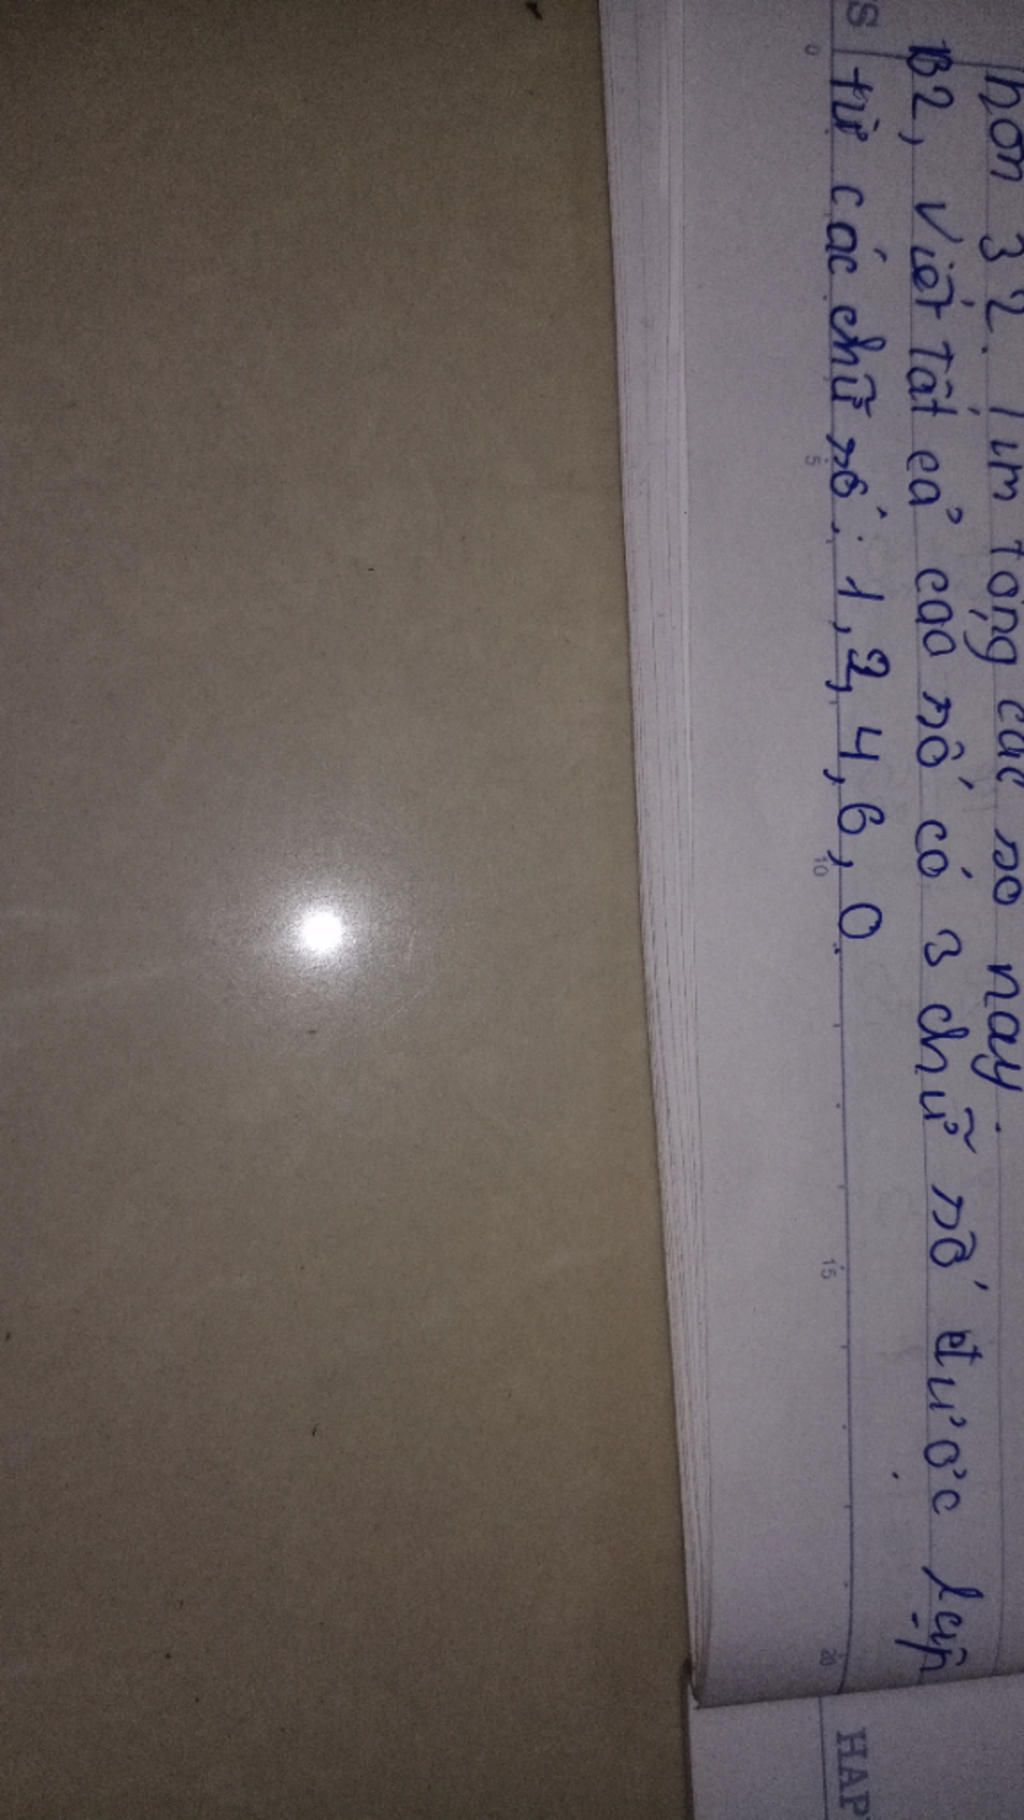 hơn 32. Tìm tổng các số này.
B2, Viết tất cả cao số có 3 chữ số được lập
từ các chữ số: 1, 2, 4, 6, 0
S
0 5 10 15 20
HAP